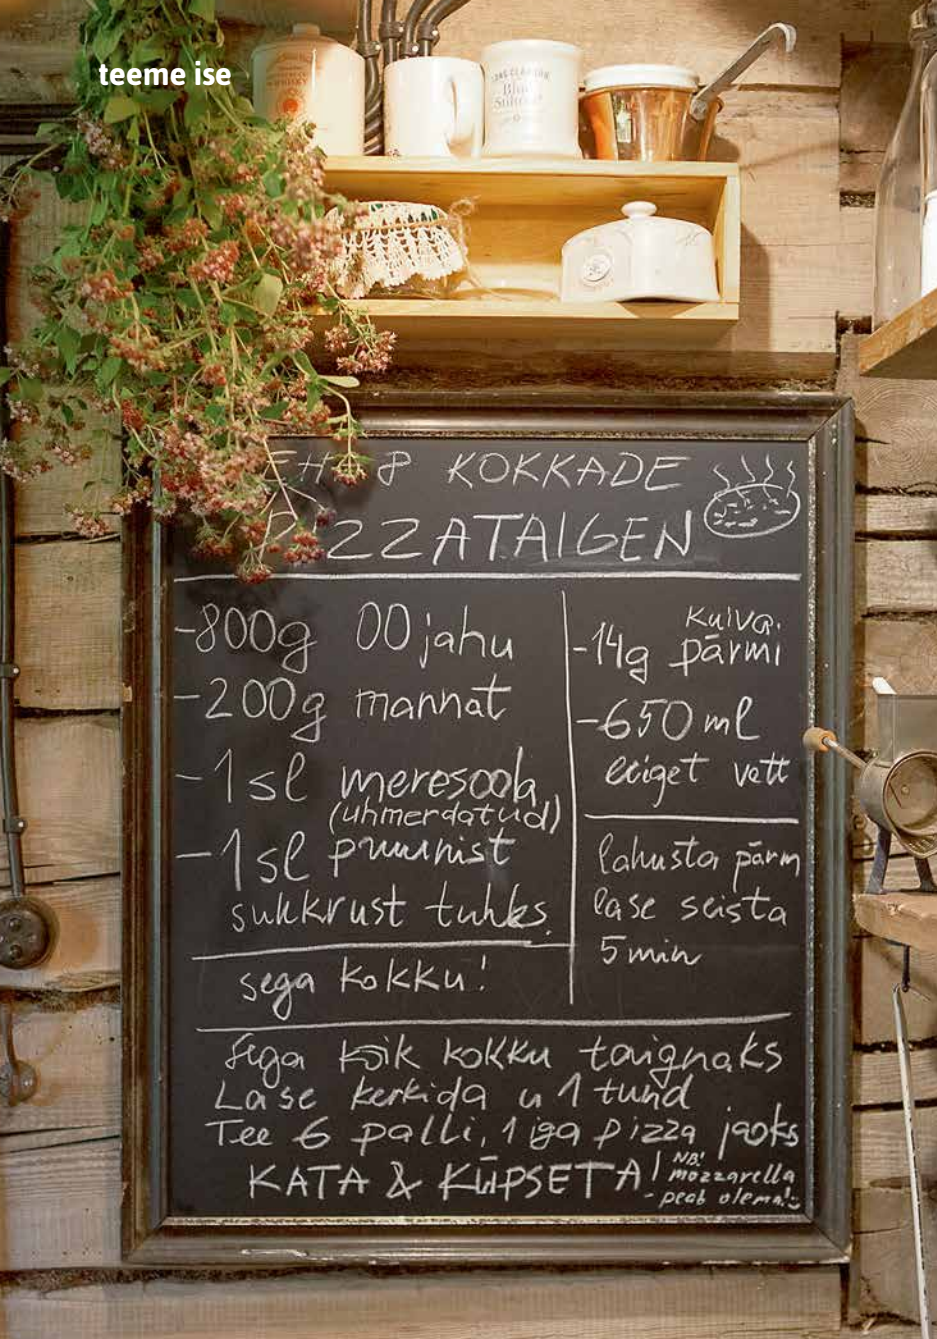 teeme ise
EH 8 KOKKADE
PIZZATAIGEN
-800g 00 jahu
-200g mannat
-1 sl meresoola
(uhmerdatud)
-1 sl pruunist
suhkrust tuhks.
sega kokku!
kuiva.
-14g pärmi
-650 ml
leiget vett
lahusta pärm
lase seista
5 min
Sega kõik kokku taignaks
Lase kerkida u 1 tund
Tee 6 palli, 1 iga pizza jaoks
KATA & KÜPSETA!
NB!
mozzarella
- peab olema!